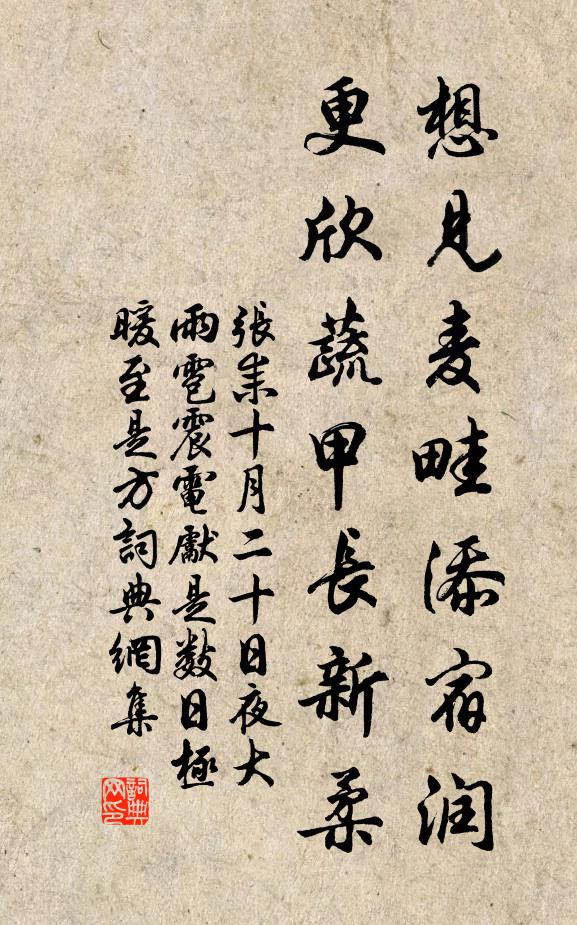 想见麦畦添宿润
更欣蔬甲長新柔
張耒十月二十日夜大
雨雹震電獻是数日極
暖至是方詞典網集
詞典
网印